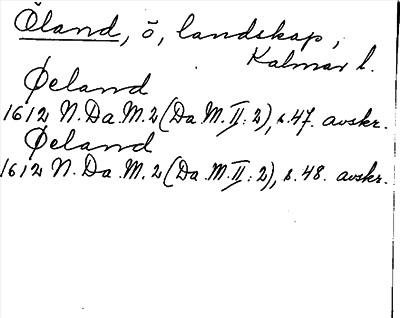 Öland, ö, landskap,
Kalmar l.
Øeland
1612 N. Da. M. 2 (Da. M. II: 2), s. 47. avskr.
Øeland
1612 N. Da. M. 2 (Da. M. II: 2), s. 48. avskr.